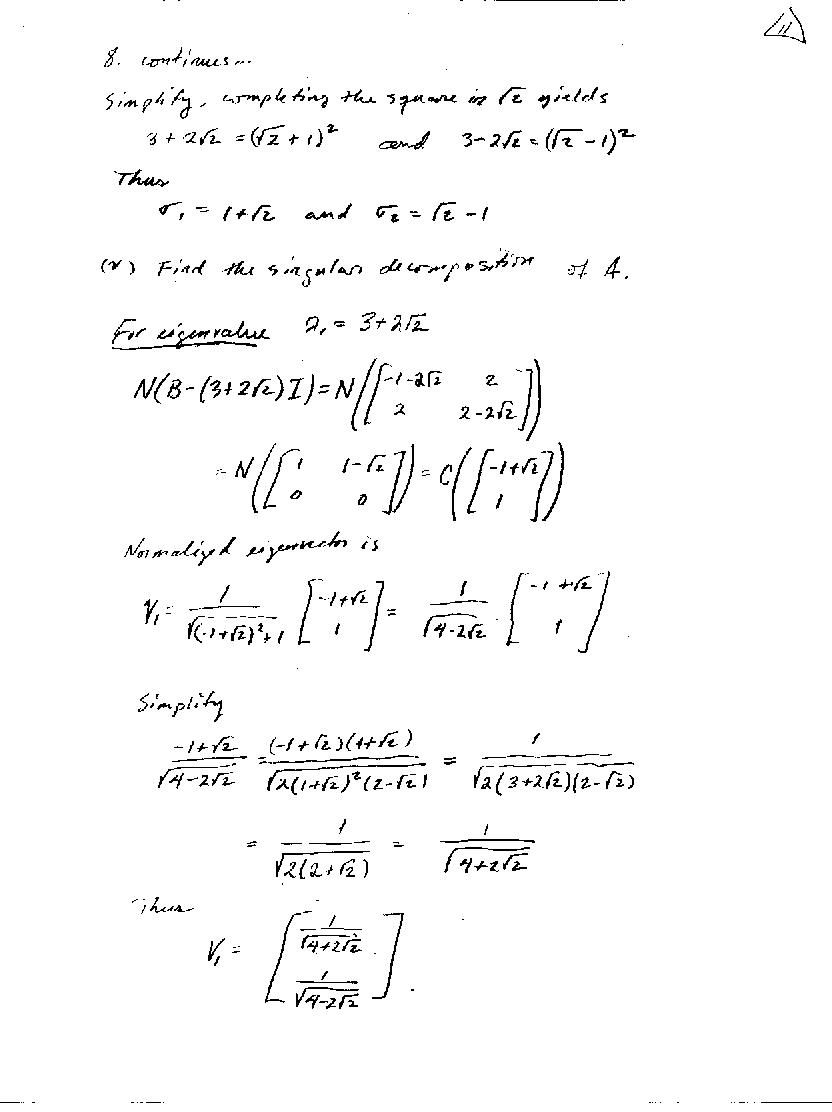 11
8. continues...
Simplify, completing the square in √2 yields
3+2√2 = (√2+1)² and 3-2√2 = (√2-1)²
Thus
σ₁ = 1+√2 and σ₂ = √2-1
(v) Find the singular decomposition of A.
For eigenvalue λ₁ = 3+2√2
N(B-(3+2√2)I) = N([-1-2√2 2; 2 2-2√2])
= N([1 1-√2; 0 0]) = C([-1+√2; 1])
Normalized eigenvector is
V₁ = 1/√((-1+√2)²+1) [-1+√2; 1] = 1/√(4-2√2) [-1+√2; 1]
Simplify
(-1+√2)/√(4-2√2) = (-1+√2)(1+√2)/√(2(1+√2)²(2-√2)) = 1/√(2(3+2√2)(2-√2))
= 1/√(2(2+√2)) = 1/√(4+2√2)
Thus
V₁ = [1/√(4+2√2); 1/√(4-2√2)].